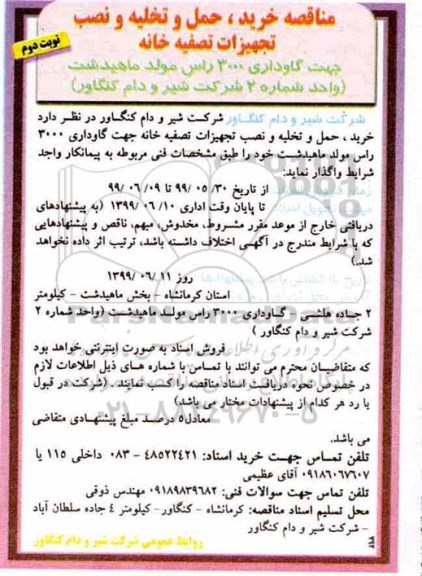 مناقصه خرید ، حمل و تخلیه و نصب
تجهیزات تصفیه خانه
نوبت دوم
جهت گاوداری ۳۰۰۰ راس مولد ماهیدشت
(واحد شماره ۲ شرکت شیر و دام کنگاور)
شرکت شیر و دام کنگاور شرکت شیر و دام کنگاور در نظر دارد
خرید ، حمل و تخلیه و نصب تجهیزات تصفیه خانه جهت گاوداری ۳۰۰۰
راس مولد ماهیدشت خود را طبق مشخصات فنی مربوطه به پیمانکار واجد
شرایط واگذار نماید:
از تاریخ ۹۹/۰۵/۳۰ تا ۹۹/۰۶/۰۹
تا پایان وقت اداری ۱۳۹۹/۰۶/۱۰ (به پیشنهادهای
دریافتی خارج از موعد مقرر مشروط، مخدوش، مبهم، ناقص و پیشنهادهایی
که با شرایط مندرج در آگهی اختلاف داشته باشد، ترتیب اثر داده نخواهد
شد.)
روز ۱۱/۰۶/۱۳۹۹
استان کرمانشاه - بخش ماهیدشت - کیلومتر
۲ جاده هلشی - گاوداری ۳۰۰۰ راس مولد ماهیدشت (واحد شماره ۲
شرکت شیر و دام کنگاور )
فروش اسناد به صورت اینترنتی خواهد بود
که متقاضیان محترم می توانند با تماس با شماره های ذیل اطلاعات لازم
در خصوص نحوه دریافت اسناد مناقصه را کسب نمایند . (شرکت در قبول
یا رد هر کدام از پیشنهادات مختار می باشد)
معادل ۵ درصد مبلغ پیشنهادی متقاضی
می باشد.
تلفن تماس جهت خرید اسناد: ۴۸۵۲۲۴۲۱ - ۰۸۳ داخلی ۱۱۵ یا
۰۹۱۸۶۰۶۷۶۰۷ آقای عظیمی
تلفن تماس جهت سوالات فنی: ۰۹۱۸۹۸۳۹۶۸۲ مهندس ذوقی
محل تسلیم اسناد مناقصه: کرمانشاه - کنگاور- کیلومتر ۴ جاده سلطان آباد
- شرکت شیر و دام کنگاور
روابط عمومی شرکت شیر و دام کنگاور
ParsNamadData
۰۲۱-۸۸۳۴۹۶۷۰-۵